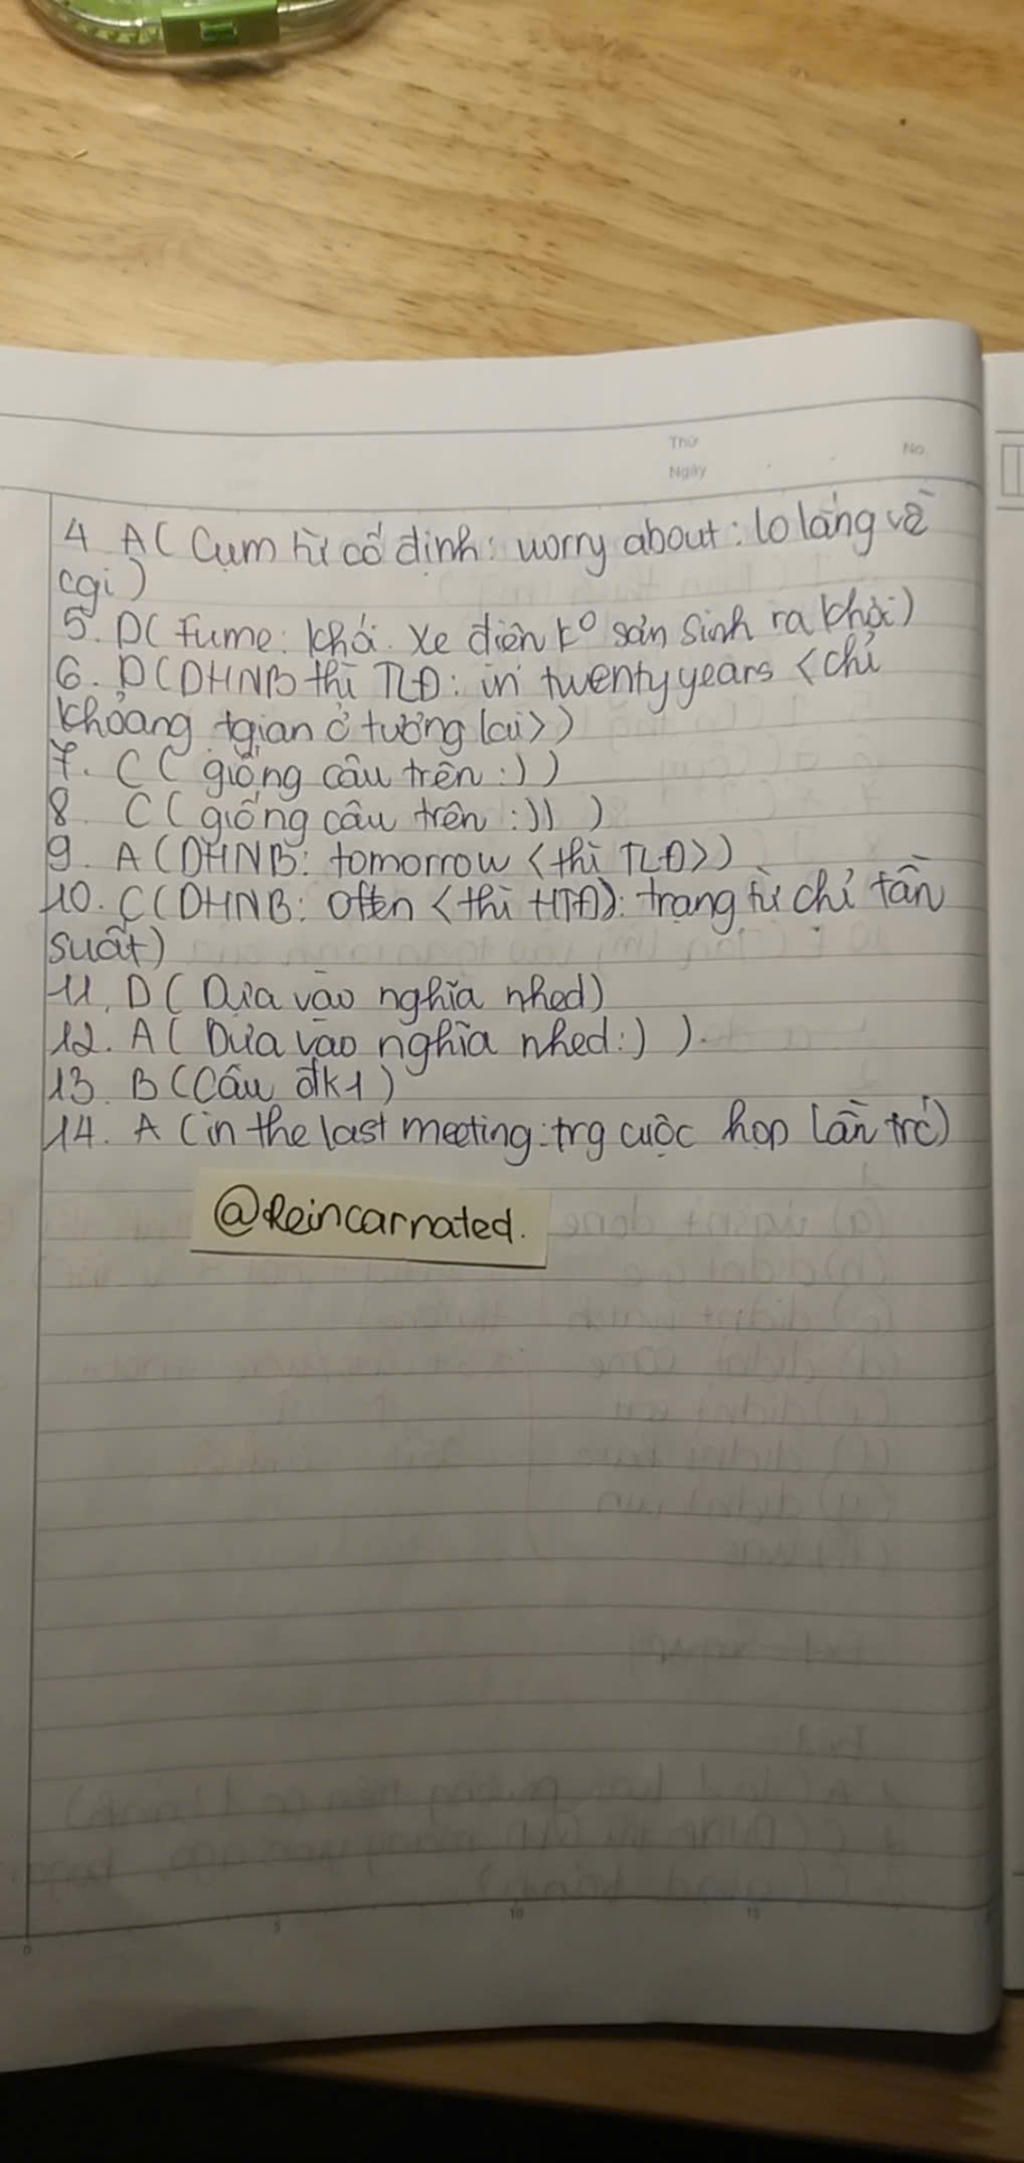 Thứ
Ngày
No.
4 A( Cụm từ cố định: worry about: lo lắng về
cgi)
5. D( Fume: khói. Xe điện k° sản sinh ra khói)
6. D(DHNB thì TLĐ: in twenty years <chỉ
khoảng tgian ở tương lai>)
7. C( giống câu trên :) )
8. C( giống câu trên :)) )
9. A(DHNB: tomorrow <thì TLĐ>)
10. C(DHNB: often <thì HTĐ>: trạng từ chỉ tần
suất)
11, D( Dựa vào nghĩa nhed)
12. A( Dựa vào nghĩa nhed:) ).
13. B(Câu đk1)
14. A (in the last meeting: trg cuộc họp lần trc)
@Reincarnated.
0 5 10 15